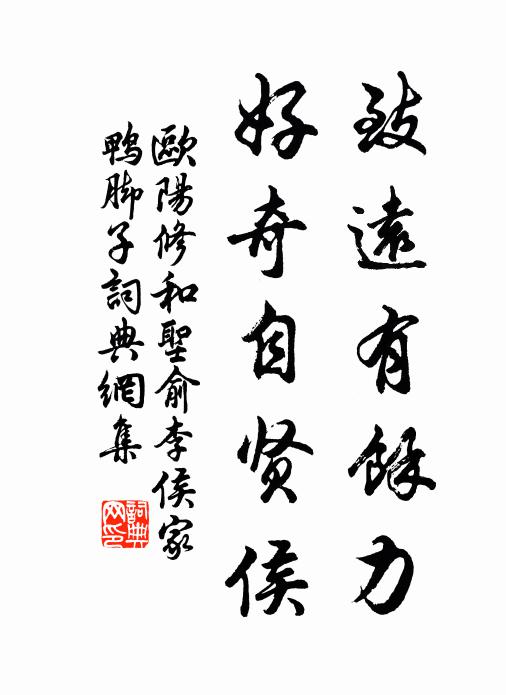 致遠有餘力
好奇自贤侯
歐陽修和聖俞李侯家
鴨脚子詞典網集
詞典
网印